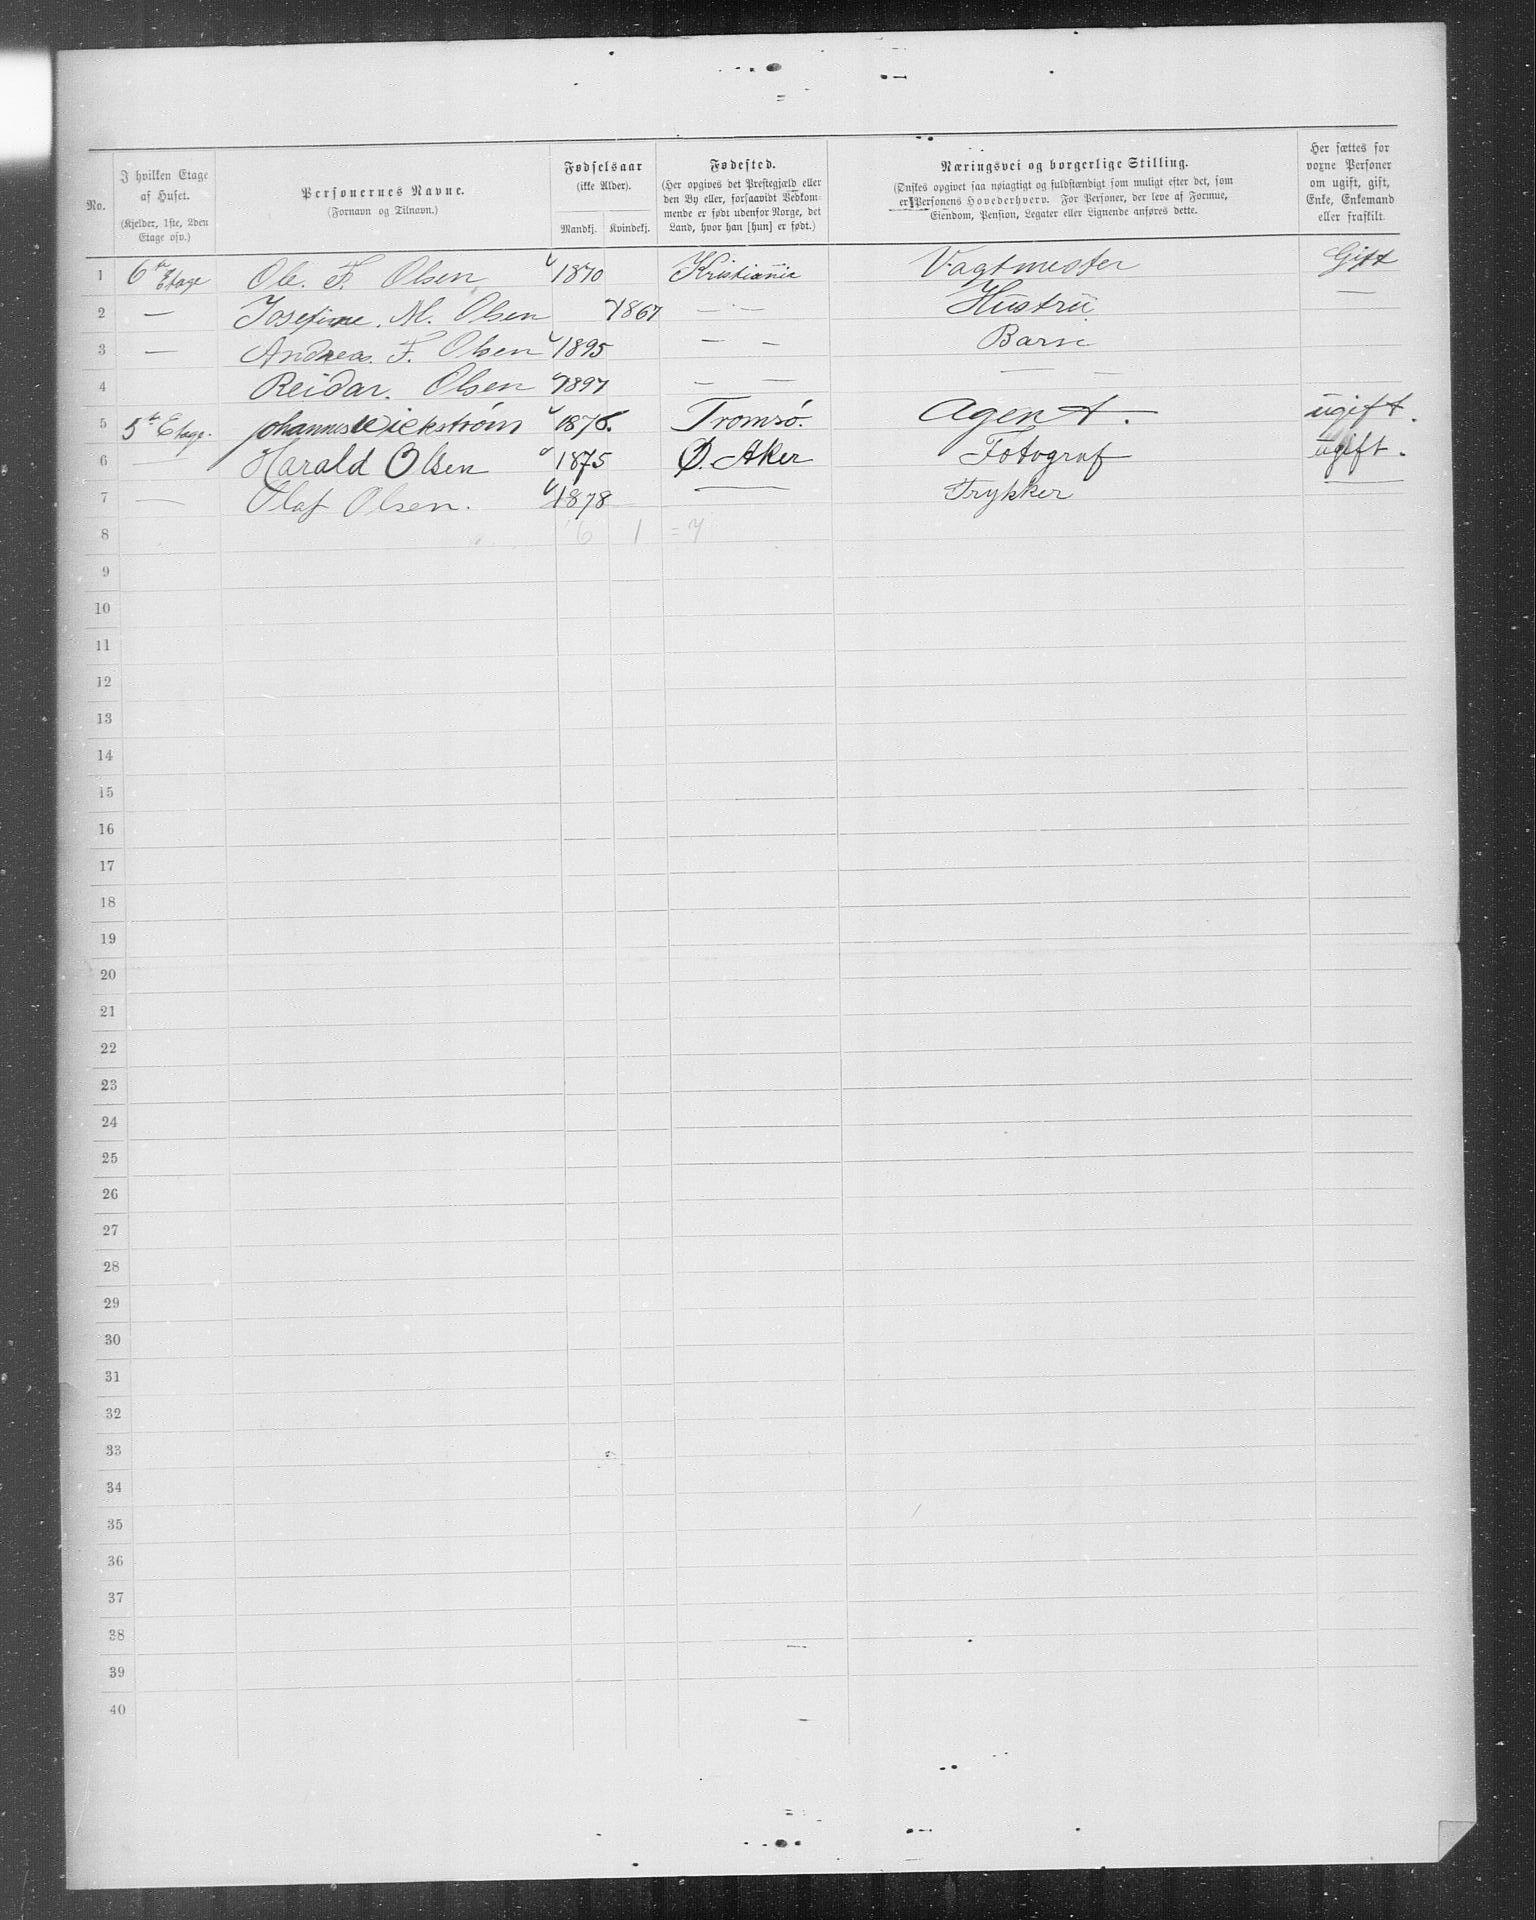 No. | I hvilken Etage af Huset. (Kjelder, 1ste, 2den Etage osv.) | Personernes Navne. (Fornavn og Tilnavn.) | Fødselsaar (ikke Alder). Mandkj. Kvindekj. | Fødested. (Her opgives det Prestegjæld eller den By eller, forsaavidt Vedkommende er født udenfor Norge, det Land, hvor han [hun] er født.) | Næringsvei og borgerlige Stilling. (Ønskes opgivet saa nøiagtigt og fuldstændigt som muligt efter det, som er Personens Hovederhverv. For Personer, der leve af Formue, Eiendom, Pension, Legater eller Lignende anføres dette. | Her sættes for voxne Personer om ugift, gift, Enke, Enkemand eller fraskilt.
1 6te Etage Ole. F. Olsen 1870 Kristiania Vagtmester Gift
2 — Josefine. M. Olsen 1867 — — Hustru —
3 — Andreas. F. Olsen 1895 — — Barn
4 Reidar. Olsen 1897 — — — —
5 5te Etage. Johannes Wickstrøm 1876. Tromsø. Agent. ugift.
6 — Harald Olsen 1875 Ø. Aker Fotograf ugift.
7 — Olaf Olsen. 1878 — Trykker —
8 6 1 = 7
9
10
11
12
13
14
15
16
17
18
19
20
21
22
23
24
25
26
27
28
29
30
31
32
33
34
35
36
37
38
39
40